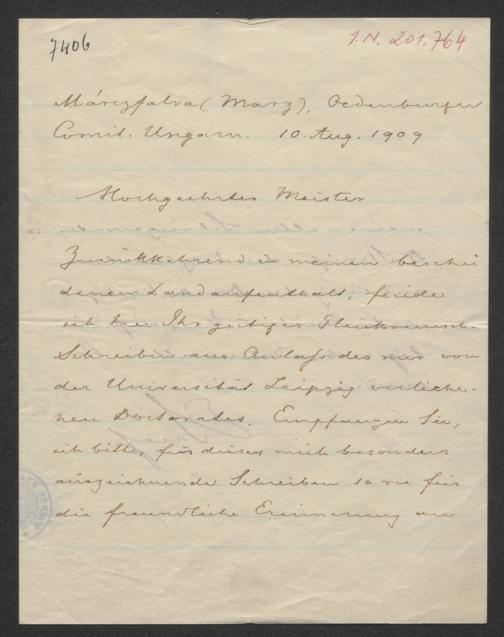 7406
I.N. 201.764
Márczfalva (Marz), Oedenburger
Comit. Ungarn. 10. Aug. 1909
Hochgeehrter Meister
Zurückkehrend in meinen beschei
denen Landaufenthalt, finde
ich hier Ihr gütiges Glückwunsch-
Schreiben aus Anlass des mir von
der Universität Leipzig verliehe-
nen Doctorates. Empfangen Sie,
ich bitte, für dieses mich besonders
auszeichnende Schreiben so wie für
die freundliche Erinnerung an